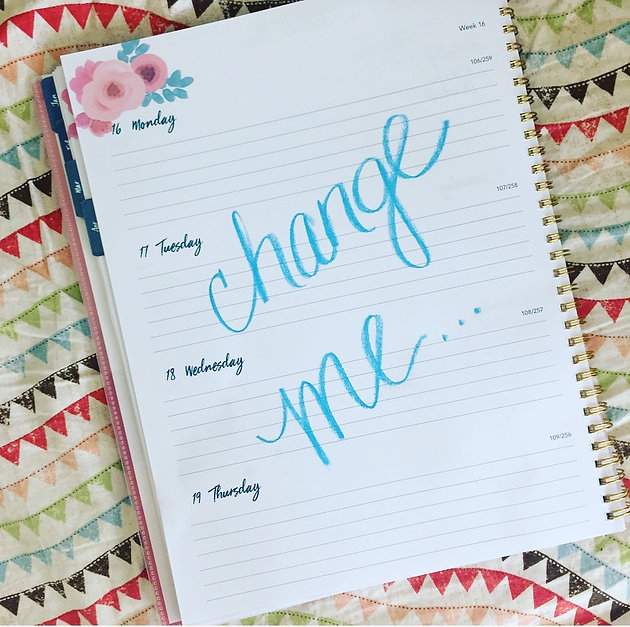 Week 16
106/259
16 Monday
change
107/258
17 Tuesday
me...
108/257
18 Wednesday
109/256
19 Thursday
Jan
Mar